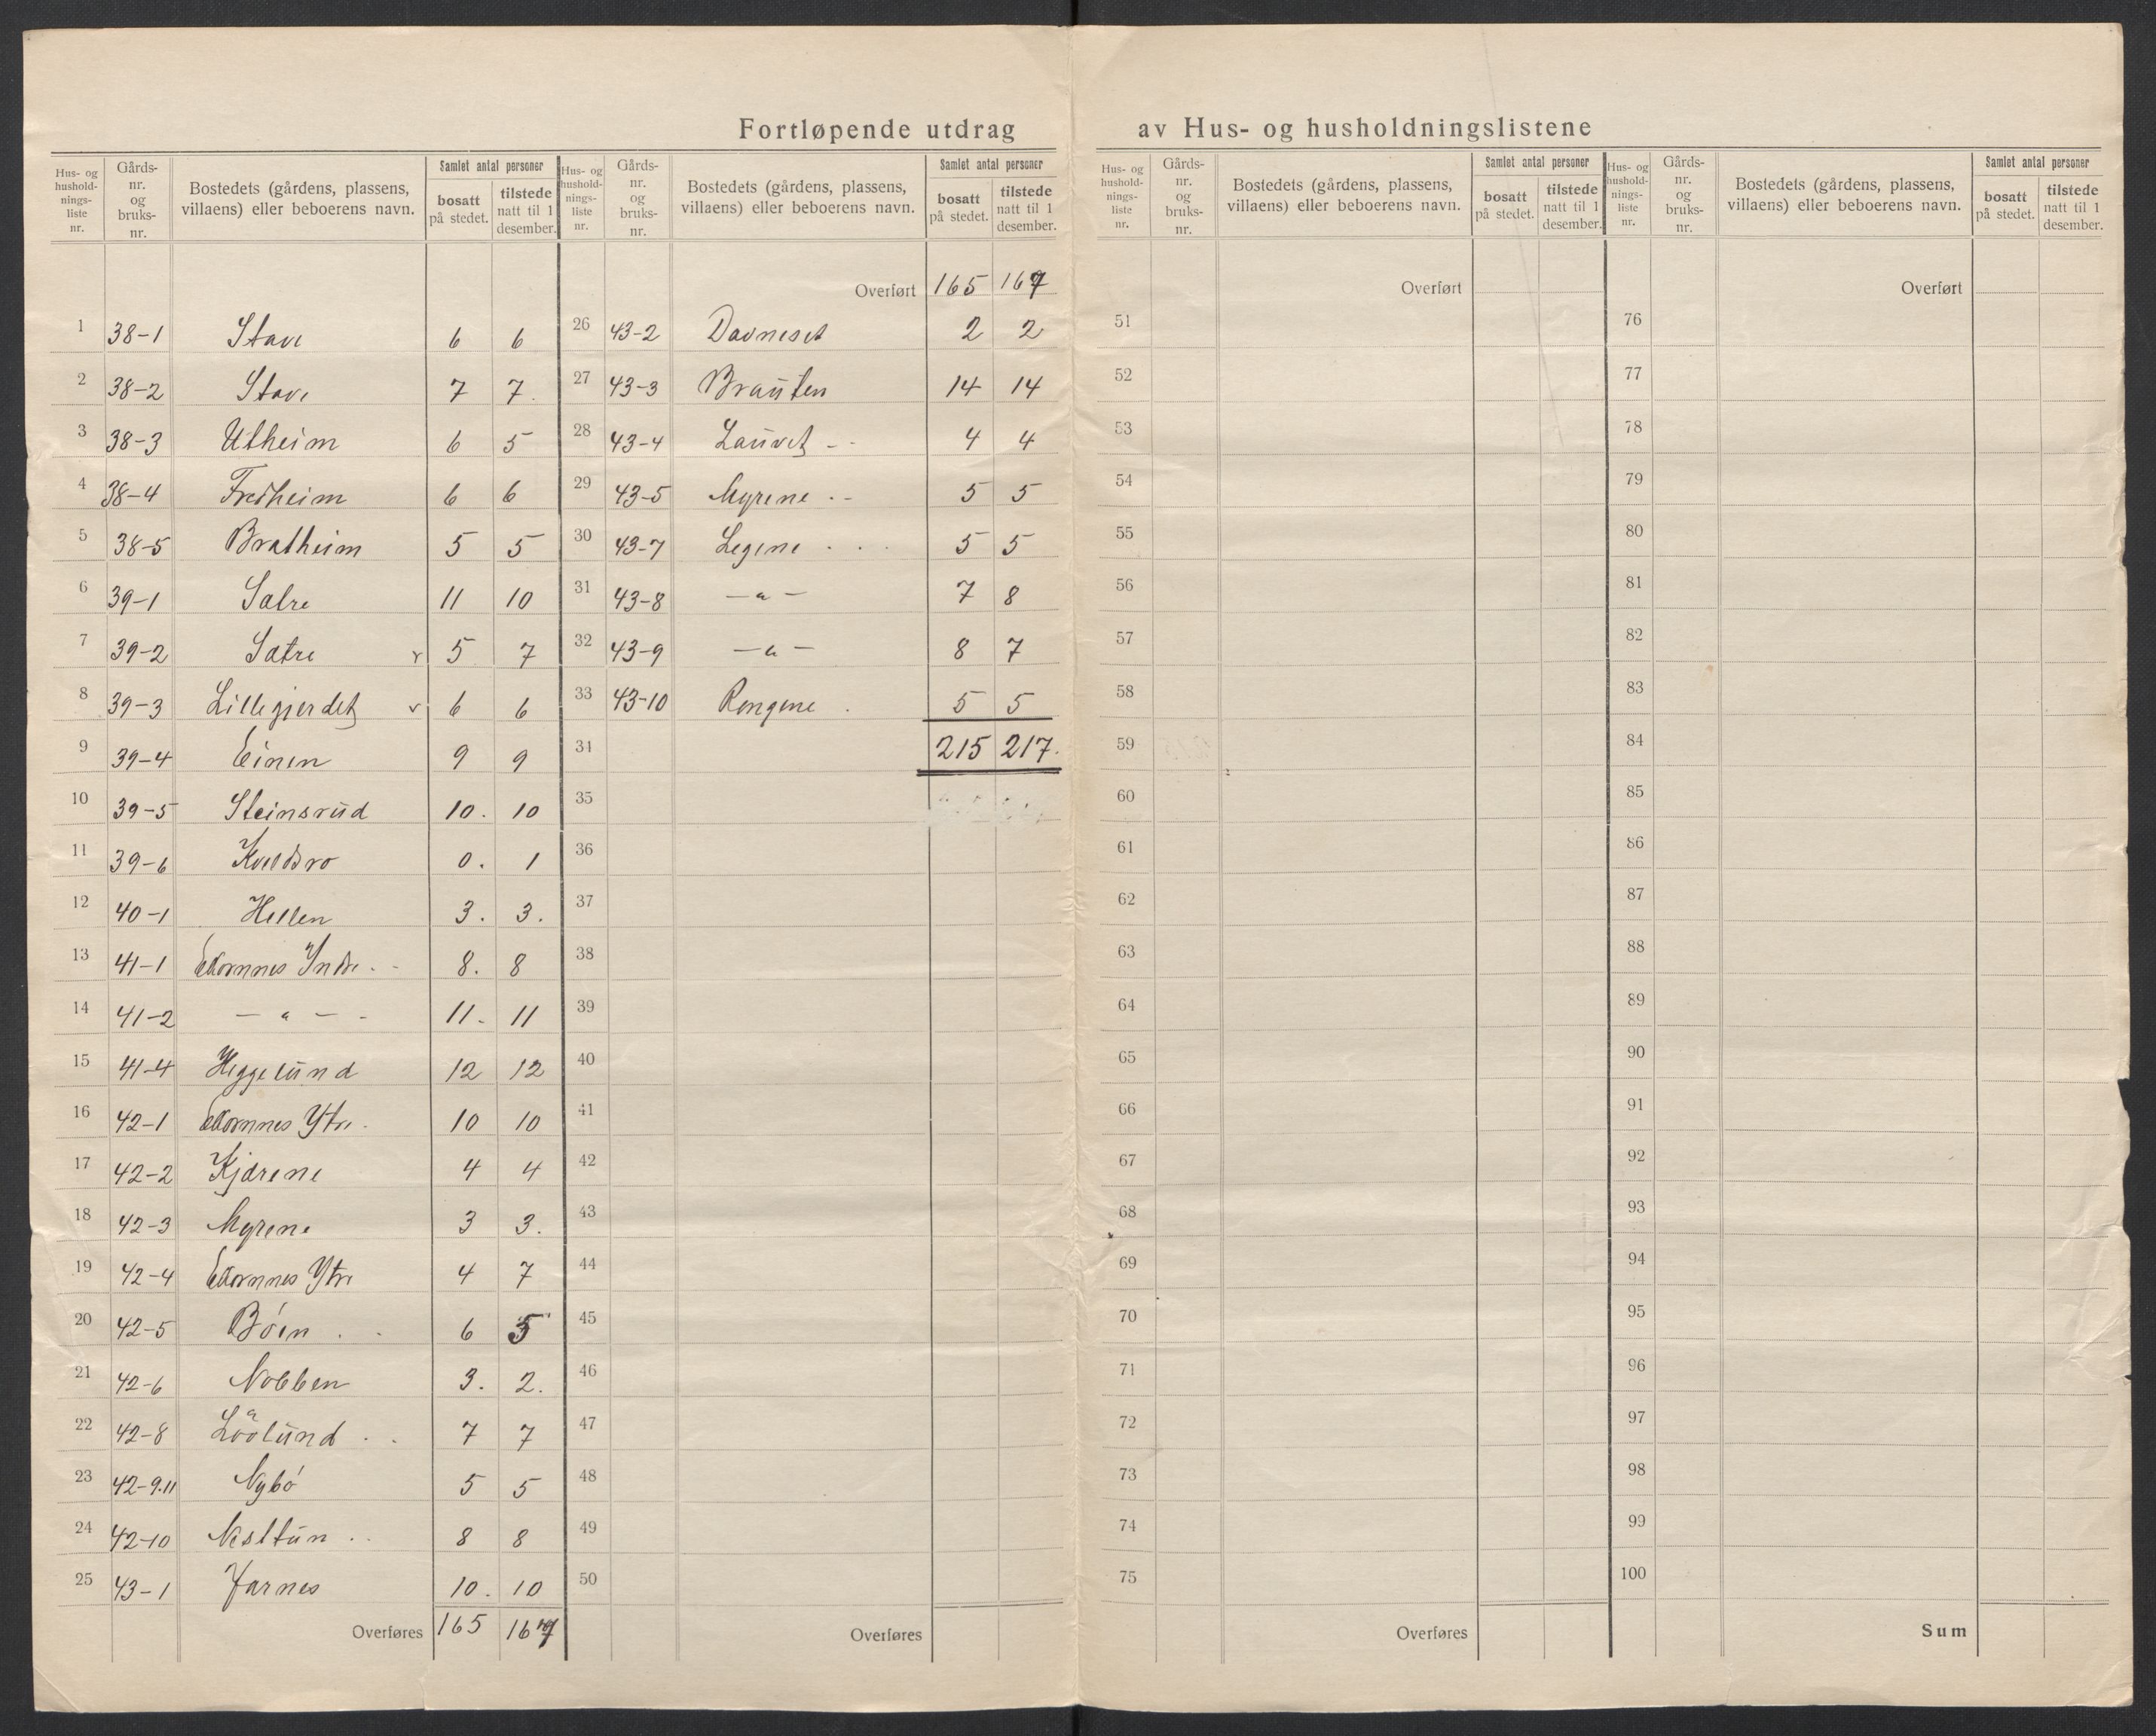 Fortløpende utdrag av Hus- og husholdningslistene
Hus- og husholdnings-liste nr. | Gårds-nr. og bruks-nr. | Bostedets (gårdens, plassens, villaens) eller beboerens navn. | Samlet antal personer bosatt på stedet. | tilstede natt til 1 desember.
1 38-1 Stave 6 6
2 38-2 Stave 7 7.
3 38-3 Utheim 6 5
4 38-4 Fredheim 6 6
5 38-5 Bratheim 5 5
6 39-1 Satre 11 10
7 39-2 Satre v 5 7
8 39-3 Lillegjerdet v 6 6
9 39-4 Einen 9 9
10 39-5 Steinsrud 10. 10
11 39-6 Kveldsro 0. 1
12 40-1 Hellen 3. 3.
13 41-1 Ekornnes Indre 8. 8
14 41-2 — " — - 11. 11
15 41-4 Heggelund 12 12
16 42-1 Ekornnes Ytre 10 10
17 42-2 Kjærene 4 4
18 42-3 Myrene 3 3.
19 42-4 Ekornnes Ytre 4 7
20 42-5 Böen . . 6 5
21 42-6 Nobben 3. 2.
22 42-8 7 7
23 42-9.11 Nybö 5 5
24 42-10 Nesttun . . 8 8
25 43-1 Jarnes 10. 10
Overføres 165 167
Hus- og husholdnings-liste nr. | Gårds-nr. og bruks-nr. | Bostedets (gårdens, plassens, villaens) eller beboerens navn. | Samlet antal personer bosatt på stedet. | tilstede natt til 1 desember.
Overført 165 167
26 43-2 Davneset 2 2
27 43-3 Brauten 14 14
28 43-4 Lauvet - - 4 4
29 43-5 Myrene . - 5 5
30 43-7 Legene . . . 5 5
31 43-8 — " — 7 8
32 43-9 — " — 8 7
33 43-10 Rongene . 5 5
34 215 217.
35
36
37
38
39
40
41
42
43
44
45
46
47
48
49
50
Overføres
Hus- og husholdnings-liste nr. | Gårds-nr. og bruks-nr. | Bostedets (gårdens, plassens, villaens) eller beboerens navn. | Samlet antal personer bosatt på stedet. | tilstede natt til 1 desember.
Overført
51
52
53
54
55
56
57
58
59
60
61
62
63
64
65
66
67
68
69
70
71
72
73
74
75
Overføres
Hus- og husholdnings-liste nr. | Gårds-nr. og bruks-nr. | Bostedets (gårdens, plassens, villaens) eller beboerens navn. | Samlet antal personer bosatt på stedet. | tilstede natt til 1 desember.
Overført
76
77
78
79
80
81
82
83
84
85
86
87
88
89
90
91
92
93
94
95
96
97
98
99
100
Sum